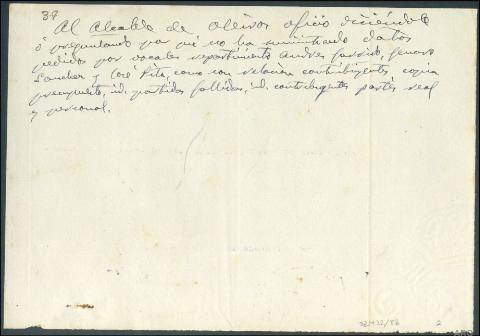 38
Al Alcalde de Oleiros oficio diciéndole
o preguntando por qué no ha suministrado datos
pedidos por vocales repartimiento Andres Garrido, Genaro
Sanchez y José Rita, como son relación contribuyentes, copia
presupuesto, id. partidas fallidas, id. contribuyentes partes real
y personal.
2